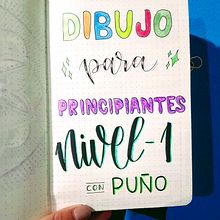 DIBUJO
para
PRINCIPIANTES
nivel-1
CON PUÑO